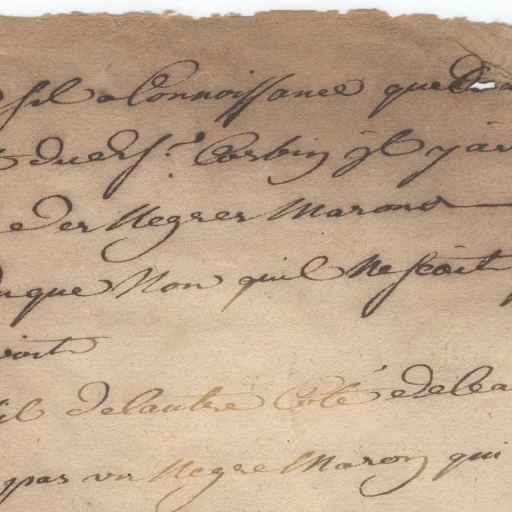 sil a Connoissance que
du d. Sr. Corbin jl y a
des Negres Marons
que Non quil Ne scait
voit
sil de lautre Coté de lea
pas un Negre Maron qui